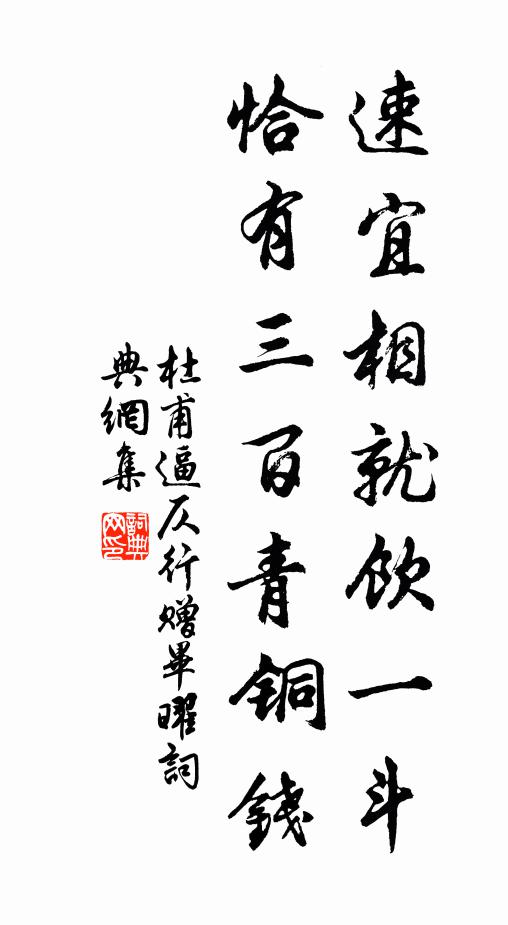 速宜相就飲一斗
恰有三百青銅錢
杜甫逼仄行贈畢曜詞
典網集
詞典网印